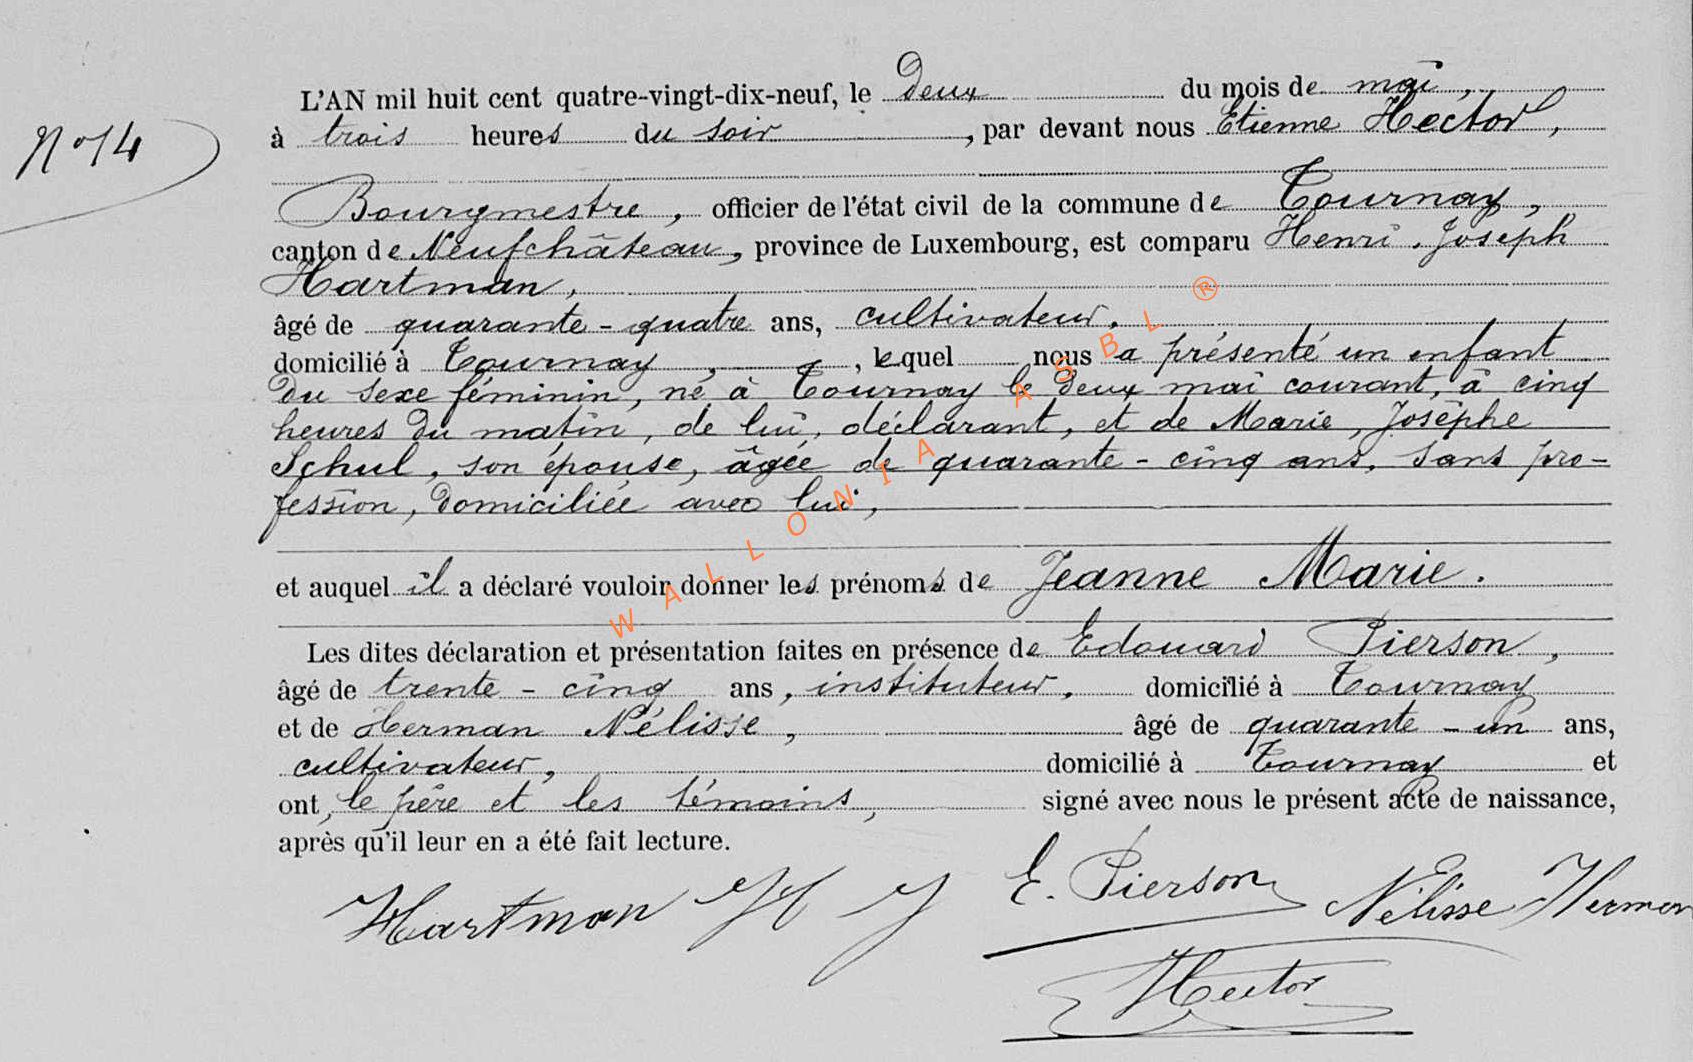 L'AN mil huit cent quatre-vingt-dix-neuf, le deux du mois de mai,
No 14
à trois heures du soir, par devant nous Etienne Hector,
Bourgmestre, officier de l'état civil de la commune de Tournay,
canton de Neufchâteau, province de Luxembourg, est comparu Henri, Joseph
Hartman,
âgé de quarante-quatre ans, cultivateur,
domicilié à Tournay, , lequel nous a présenté un enfant
du sexe féminin, né à Tournay le deux mai courant, à cinq
heures du matin, de lui, déclarant, et de Marie, Josèphe
Schul, son épouse, âgée de quarante-cinq ans, sans pro-
fession, domiciliée avec lui,
et auquel il a déclaré vouloir donner les prénoms de Jeanne Marie.
Les dites déclaration et présentation faites en présence de Edouard Pierson,
âgé de trente-cinq ans, instituteur, domicilié à Tournay
et de Herman Nélisse, âgé de quarante-un ans,
cultivateur, domicilié à Tournay et
ont, le père et les témoins, signé avec nous le présent acte de naissance,
après qu'il leur en a été fait lecture.
Hartman H J E. Pierson Nélisse Herman
Hector
WALLONIA ASBL ®